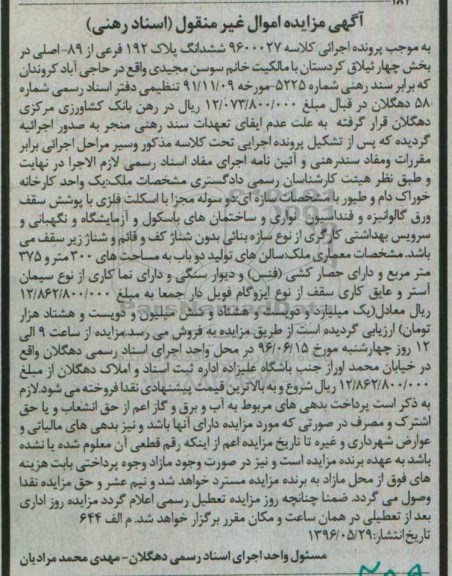 آگهی مزایده اموال غیر منقول (اسناد رهنی)
به موجب پرونده اجرائی کلاسه ۹۶۰۰۰۲۷ ششدانگ پلاک ۱۹۲ فرعی از ۸۹-اصلی در
بخش چهار ئیلاق کردستان با مالکیت خانم سوسن مجیدی واقع در حاجی آباد کروندان
که برابر سند رهنی شماره ۵۳۲۵-مورخه ۹۱/۱۱/۰۹ تنظیمی دفتر اسناد رسمی شماره
۵۸ دهگلان در قبال مبلغ ۱۲/۰۷۳/۸۰۰/۰۰۰ ریال در رهن بانک کشاورزی مرکزی
دهگلان قرار گرفته به علت عدم ایفای تعهدات سند رهنی منجر به صدور اجرائیه
گردیده که پس از تشکیل پرونده اجرایی تحت کلاسه مذکور وسیر مراحل اجرائی برابر
مقررات ومفاد سندرهنی و آئین نامه اجرای مفاد اسناد رسمی لازم الاجرا در نهایت
و طبق نظر هیئت کارشناسان رسمی دادگستری مشخصات ملک:یک واحد کارخانه
خوراک دام و طیور با مشخصات سازه ای:دو سوله مجزا با اسکلت فلزی با پوشش سقف
ورق گالوانیزه و فنداسیون نواری و ساختمان های باسکول و آزمایشگاه و نگهبانی و
سرویس بهداشتی کارگری از نوع سازه بنائی بدون شناژ کف و قائم و شناژ زیر سقف می
باشد. مشخصات معماری ملک:سالن های تولید دو باب به مساحت های ۳۰۰ متر و ۳۷۵
متر مربع و دارای حصار کشی (فنس) و دیوار سنگی و دارای نما کاری از نوع سیمان
آستر و عایق کاری سقف از نوع ایزوگام فویل دار جمعا به مبلغ ۱۲/۸۶۲/۸۰۰/۰۰۰
ریال معادل(یک میلیارد و دویست و هشتاد و شش میلیون و دویست و هشتاد هزار
تومان) ارزیابی گردیده است از طریق مزایده به فروش می رسد.مزایده از ساعت ۹ الی
۱۲ روز چهارشنبه مورخ ۹۶/۰۶/۱۵ در محل واحد اجرای اسناد رسمی دهگلان واقع
در خیابان محمد اوراز جنب باشگاه علیزاده اداره ثبت اسناد و املاک دهگلان از مبلغ
۱۲/۸۶۲/۸۰۰/۰۰۰ ریال شروع و به بالاترین قیمت پیشنهادی نقدا فروخته می شود.لازم
به ذکر است پرداخت بدهی های مربوط به آب و برق و گاز اعم از حق انشعاب و یا حق
اشترک و مصرف در صورتی که مورد مزایده دارای آنها باشد و نیز بدهی های مالیاتی و
عوارض شهرداری و غیره تا تاریخ مزایده اعم از اینکه رقم قطعی آن معلوم شده یا نشده
باشد به عهده برنده مزایده است و نیز در صورت وجود مازاد وجوه پرداختی بابت هزینه
های فوق از محل مازاد به برنده مزایده مسترد خواهد شد و نیم عشر و حق مزایده نقدا
وصول می گردد. ضمنا چنانچه روز مزایده تعطیل رسمی اعلام گردد مزایده روز اداری
بعد از تعطیلی در همان ساعت و مکان مقرر برگزار خواهد شد. م الف ۶۴۴
تاریخ انتشار:۱۳۹۶/۰۵/۲۹
مسئول واحد اجرای اسناد رسمی دهگلان-مهدی محمد مرادیان